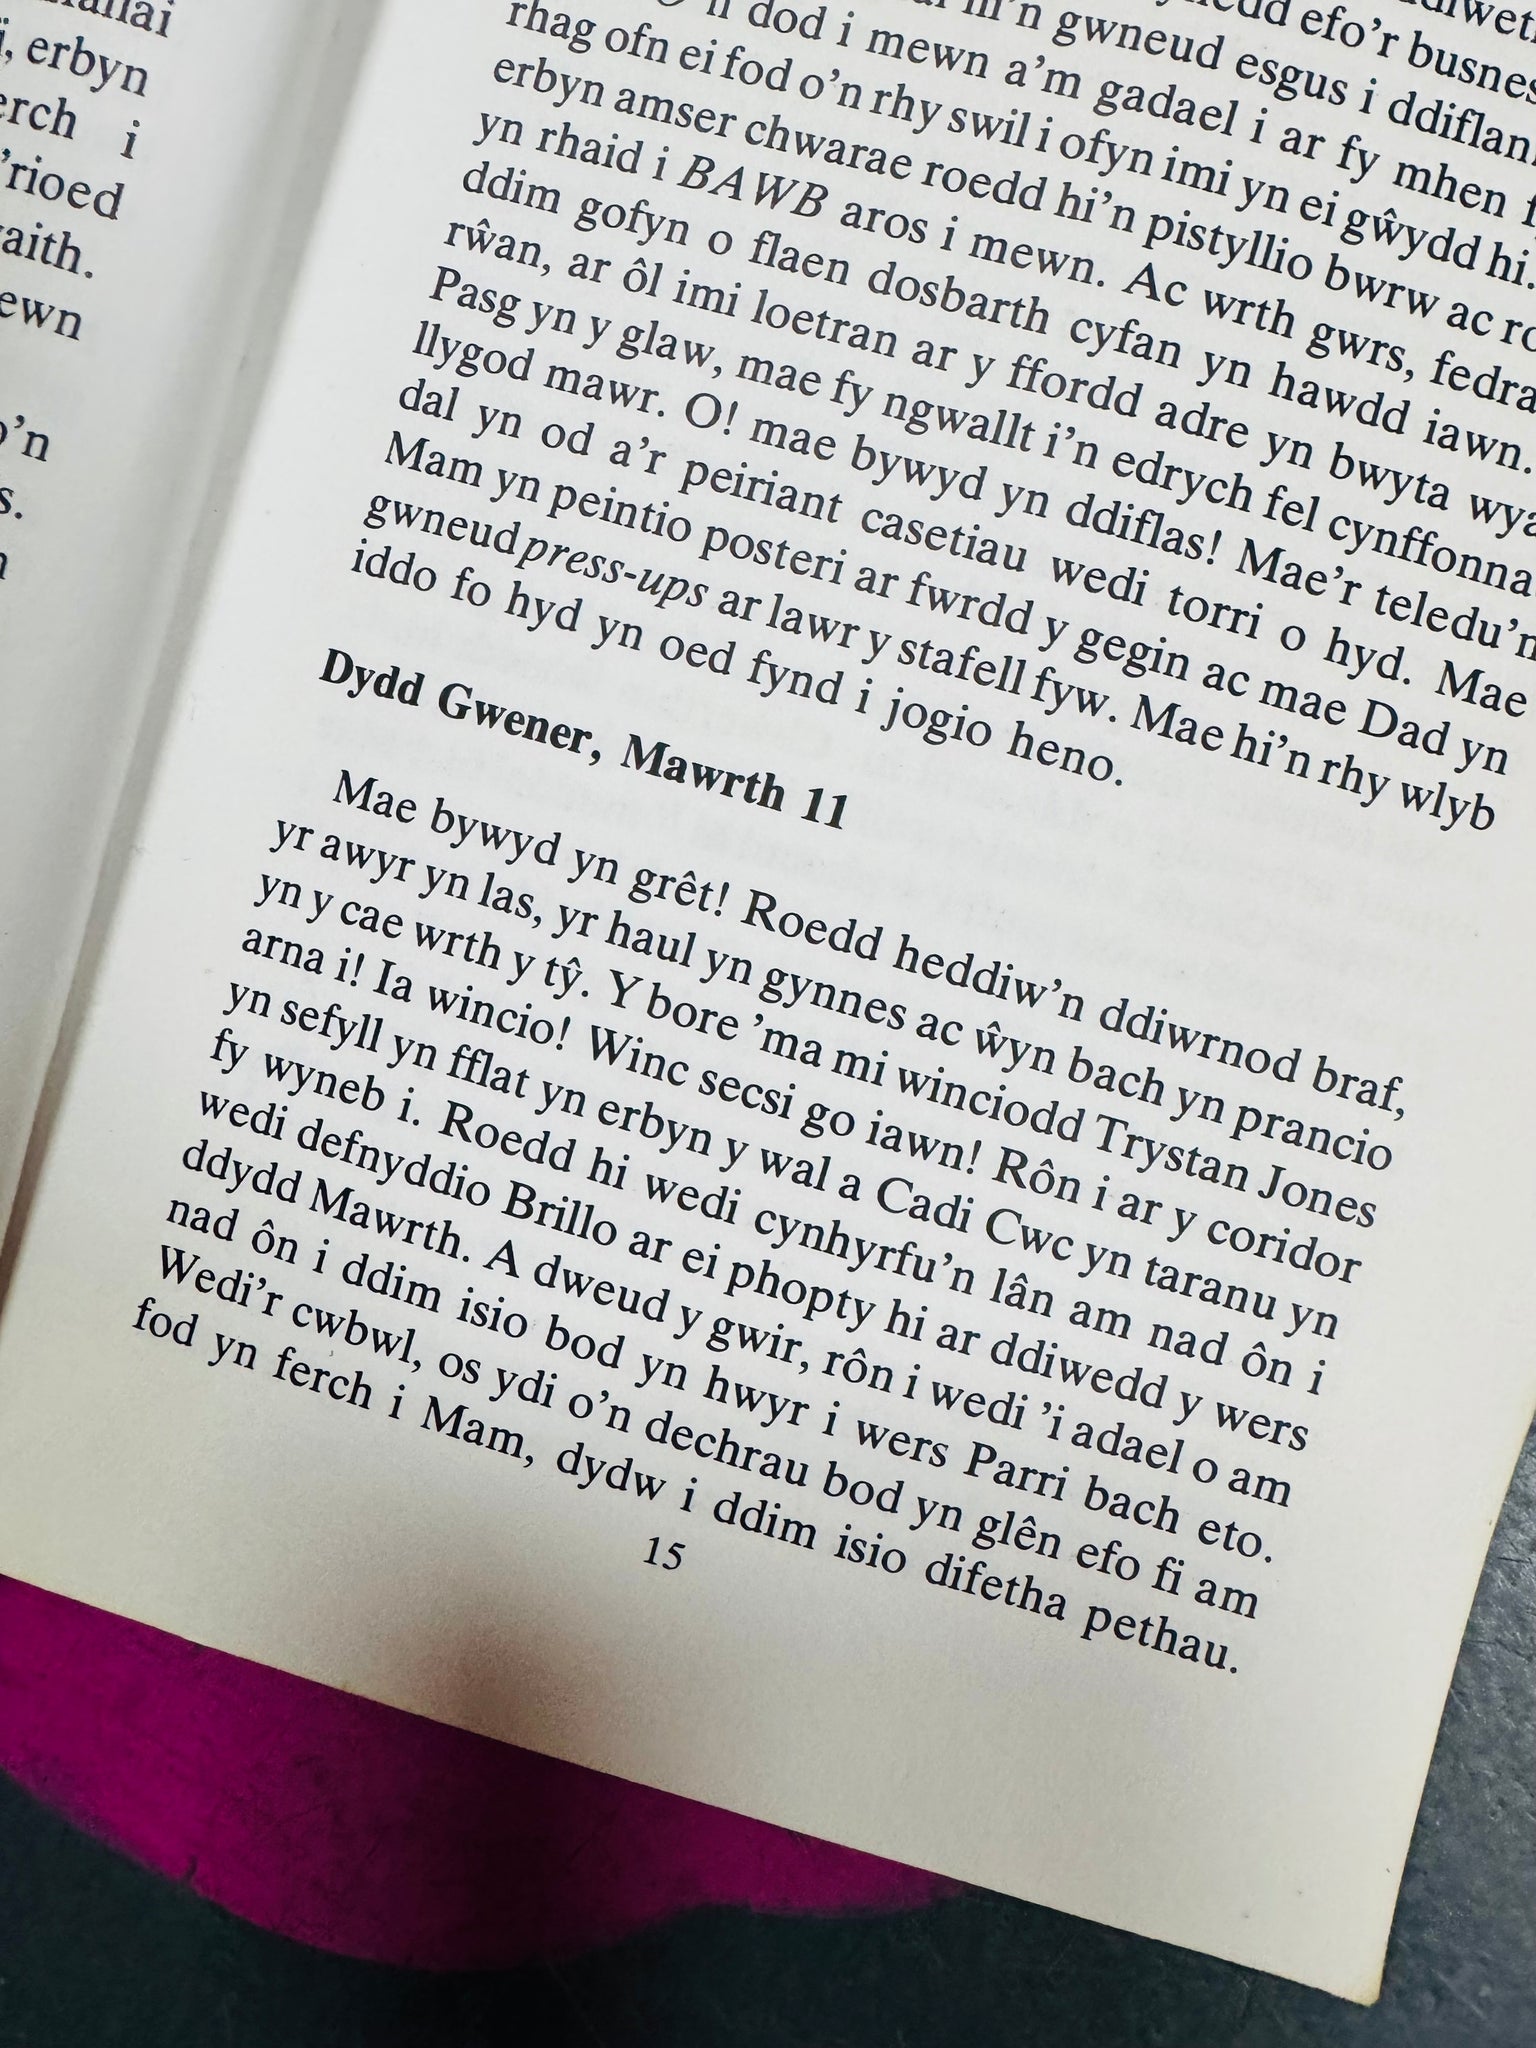 erbyn
erch i
'rioed
aith.
ewn
o'n
s.
efo'r busnes
dod i mewn a'm gwneud esgus i
rhag ofn ei fod o'n rhy swil i ofyn imi yn ei gŵydd hi.
erbyn amser chwarae roedd hi'n pistyllio bwrw ac
yn rhaid i BAWB aros i mewn. Ac wrth gwrs,
ddim gofyn o flaen dosbarth cyfan yn hawdd iawn.
rŵan, ar ôl imi loetran ar y ffordd adre yn bwyta
Pasg yn y glaw, mae fy ngwallt i'n edrych fel
llygod mawr. O! mae bywyd yn ddiflas! Mae'r teledu'n
dal yn od a'r peiriant casetiau wedi torri o hyd. Mae
Mam yn peintio posteri ar fwrdd y gegin ac mae Dad yn
gwneud press-ups ar lawr y stafell fyw. Mae hi'n rhy wlyb
iddo fo hyd yn oed fynd i jogio heno.
Dydd Gwener, Mawrth 11
Mae bywyd yn grêt! Roedd heddiw'n ddiwrnod braf,
yr awyr yn las, yr haul yn gynnes ac ŵyn bach yn prancio
yn y cae wrth y tŷ. Y bore 'ma mi winciodd Trystan Jones
arna i! Ia wincio! Winc secsi go iawn! Rôn i ar y coridor
yn sefyll yn fflat yn erbyn y wal a Cadi Cwc yn taranu yn
fy wyneb i. Roedd hi wedi cynhyrfu'n lân am nad ôn i
wedi defnyddio Brillo ar ei phopty hi ar ddiwedd y wers
ddydd Mawrth. A dweud y gwir, rôn i wedi 'i adael o am
nad ôn i ddim isio bod yn hwyr i wers Parri bach eto.
Wedi'r cwbwl, os ydi o'n dechrau bod yn glên efo fi am
fod yn ferch i Mam, dydw i ddim isio difetha pethau.
15